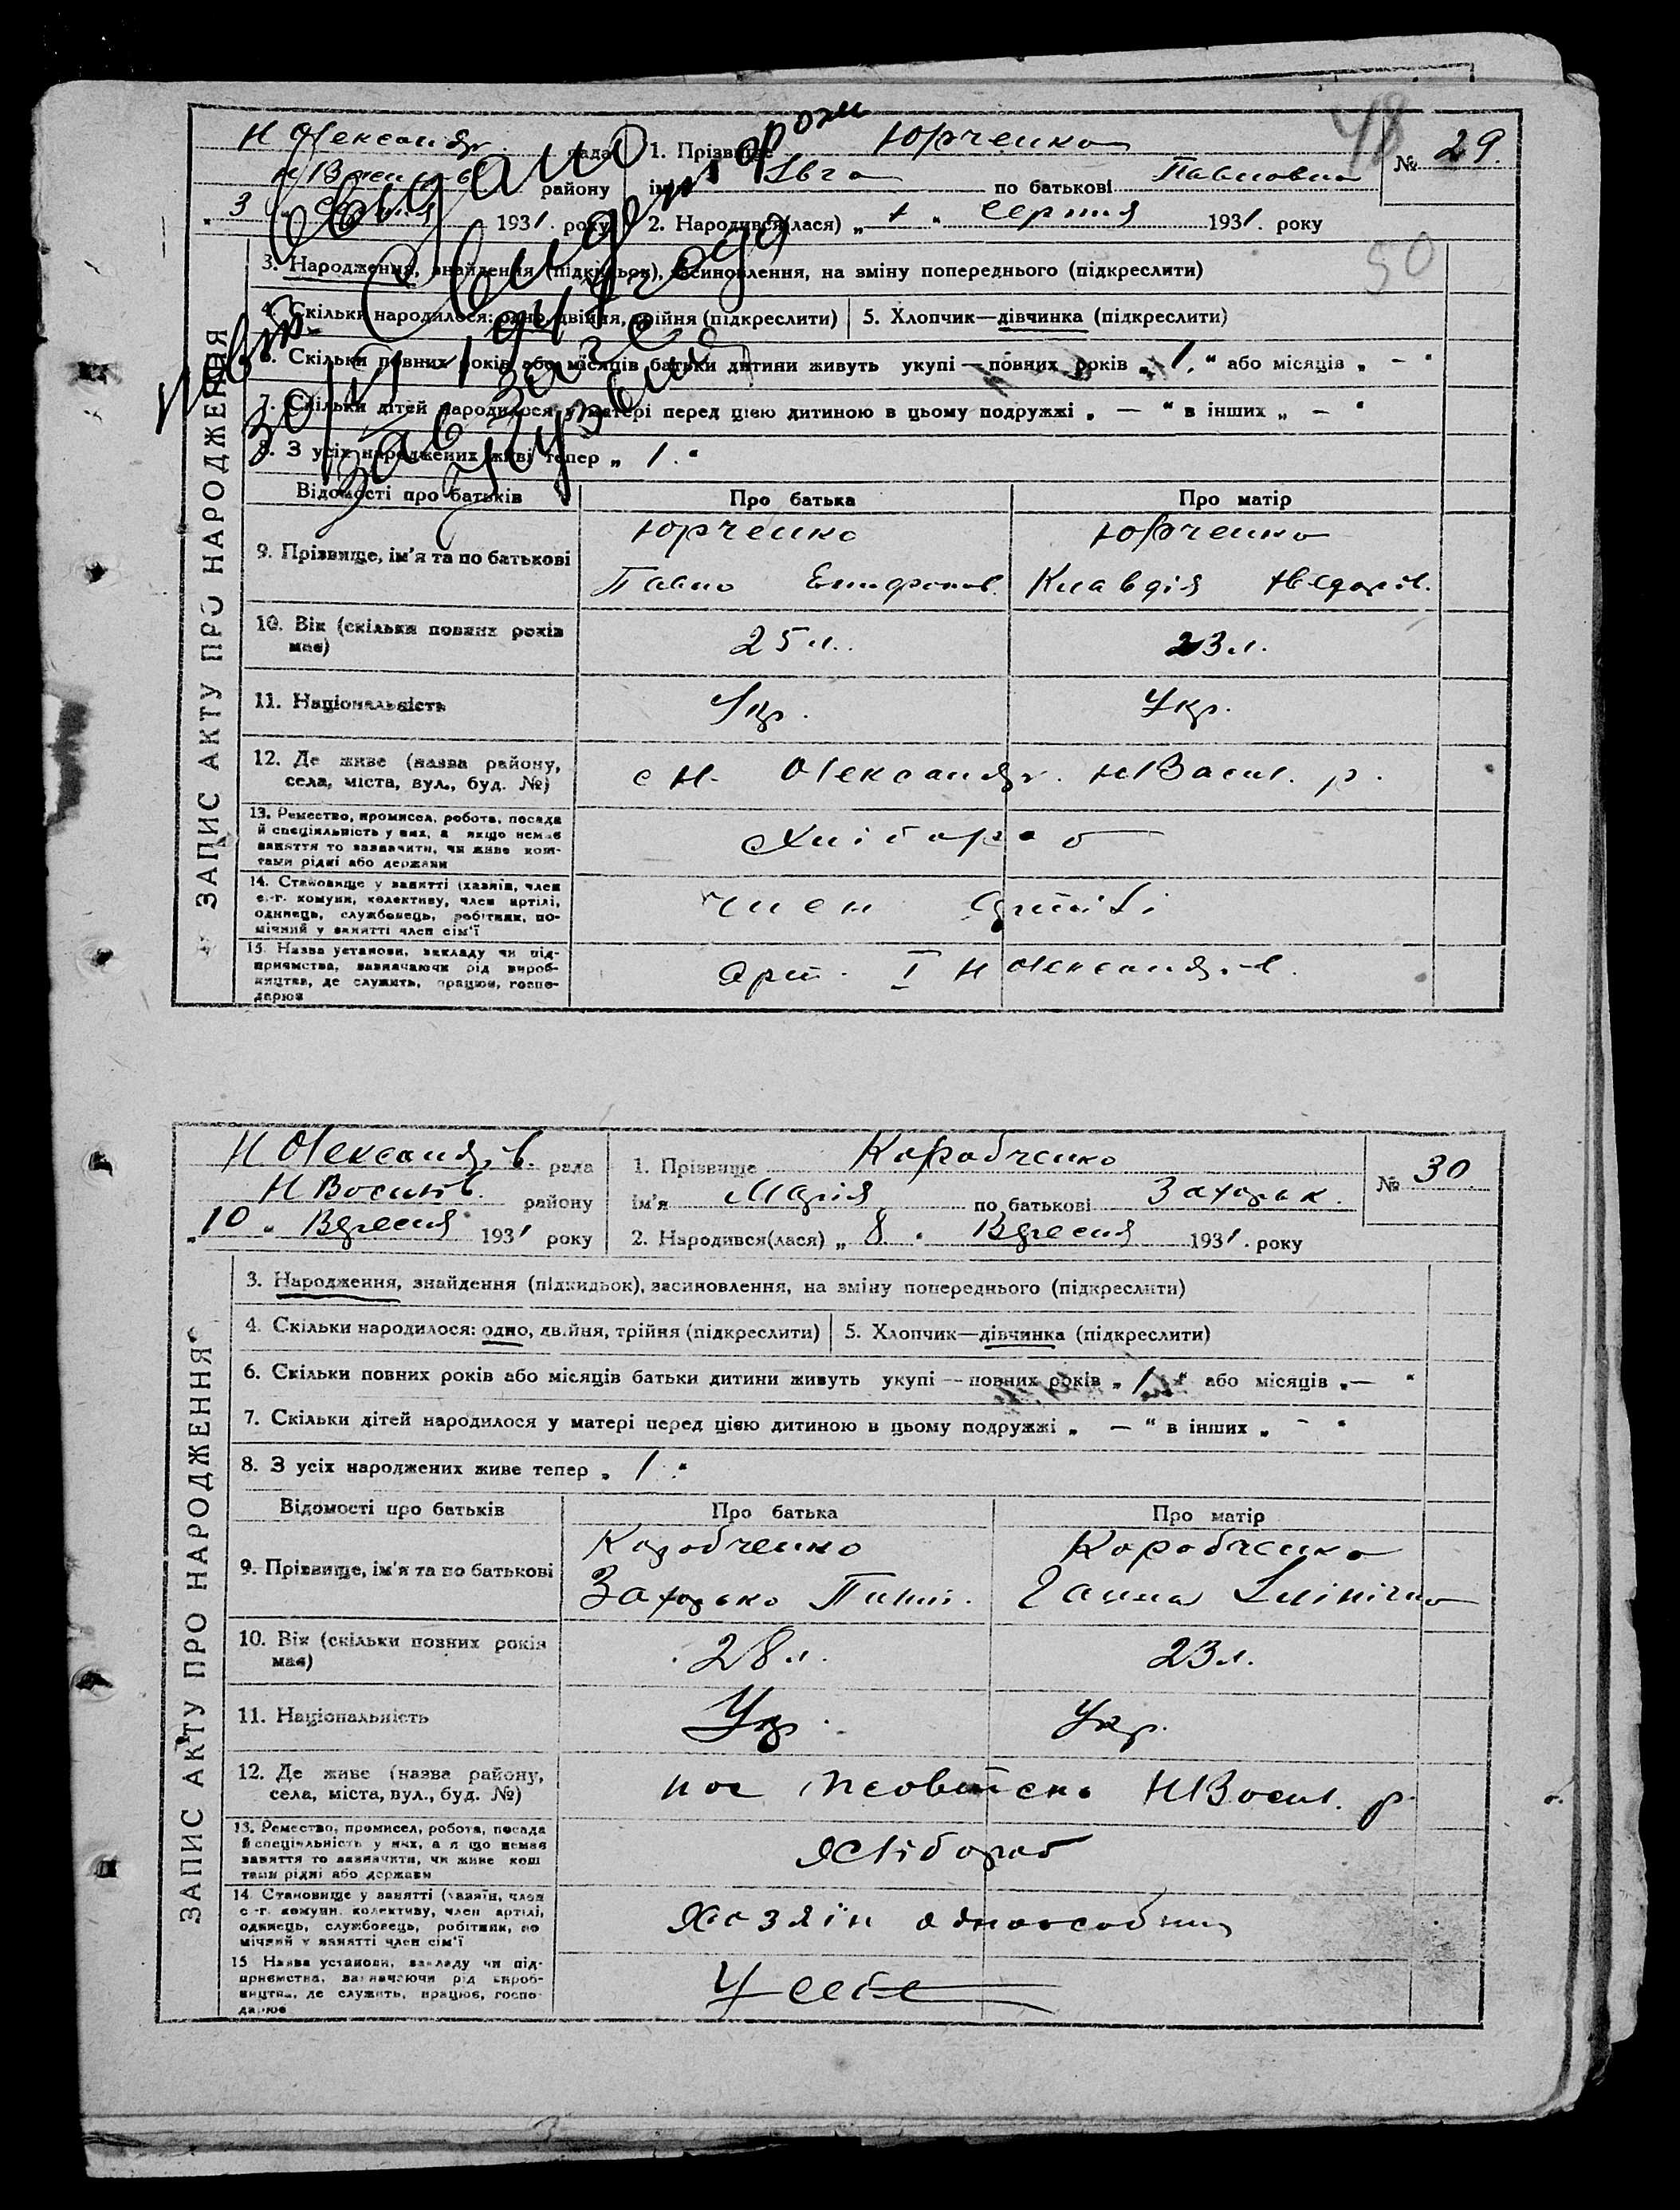 48
Н Олександр. рада
Н Василів району
" 3 " 1931. року
1. Прізвище Юрченко
ім'я Івга по батькові Павловна
№ 29.
2. Народився(лася) „ 1 " Серпня 1931. року
50
ЗАПИС АКТУ ПРО НАРОДЖЕННЯ
3. Народження, знайдення (підкидьок), засиновлення, на зміну попереднього (підкреслити)
4. Скільки народилося: одно, двійня, трійня (підкреслити) 5. Хлопчик—дівчинка (підкреслити)
6. Скільки повних років або місяців батьки дитини живуть укупі — повних років „ 1. " або місяців „ — "
7. Скільки дітей народилося у матері перед цією дитиною в цьому подружжі „ — " в інших „ — "
8. З усіх народжених живі тепер „ 1. "
Відомості про батьків Про батька Про матір
9. Прізвище, ім'я та по батькові
Юрченко Юрченко
Павло Клавдія
10. Вік (скільки повних років має) 25 л. 23 л.
11. Національність Укр. Укр.
12. Де живе (назва району, села, міста, вул., буд. №) с Н. Олександр. Н Васил. р.
13. Ремество, промисел, робота, посада
й спеціяльність у них, а якщо немає
заняття то зазначити, чи живе кош-
тами рідні або держави
Хлібороб
14. Становище у занятті (хазяїн, член
с.-г. комуни, колективу, член артілі,
одинець, службовець, робітник, по-
мічний у занятті член сім'ї
член артілі
15. Назва установи, закладу чи під-
приємства, зазначаючи рід вироб-
ництва, де служить, працює, госпо-
дарює
Арт. I Н Олександр.-в.
Видано
1947 года
за №
Н Олександ. в. рада
Н Василів. району
„ 10 " Вересня 1931 року
1. Прізвище Коробченко
ім'я Марія по батькові Захарьк.
№ 30
2. Народився(лася) „ 8 " Вересня 1931. року
ЗАПИС АКТУ ПРО НАРОДЖЕННЯ
3. Народження, знайдення (підкидьок), засиновлення, на зміну попереднього (підкреслити)
4. Скільки народилося: одно, двійня, трійня (підкреслити) 5. Хлопчик—дівчинка (підкреслити)
6. Скільки повних років або місяців батьки дитини живуть укупі — повних років „ 1. " або місяців „ — "
7. Скільки дітей народилося у матері перед цією дитиною в цьому подружжі „ — " в інших „ - "
8. З усіх народжених живе тепер „ 1 "
Відомості про батьків Про батька Про матір
9. Прізвище, ім'я та по батькові
Коробченко Коробченко
Захарько Пилип. Ганна
10. Вік (скільки повних років має) 28 л. 23 л.
11. Національність Укр. Укр.
12. Де живе (назва району, села, міста, вул., буд. №) пос Жовтень Н Васил. р.
13. Ремество, промисел, робота, посада
й спеціяльність у них, а якщо немає
заняття то зазначити, чи живе кош
тами рідні або держави
Хлібороб
14. Становище у занятті (хазяїн, член
с-г. комуни, колективу, член артілі,
одинець, службовець, робітник, по
мічний у занятті член сім'ї
Хозяїн одноособник
15 Назва установи, закладу чи під-
приємства, зазначаючи рід вироб-
ництва, де служить, працює, госпо-
дарює
У себе